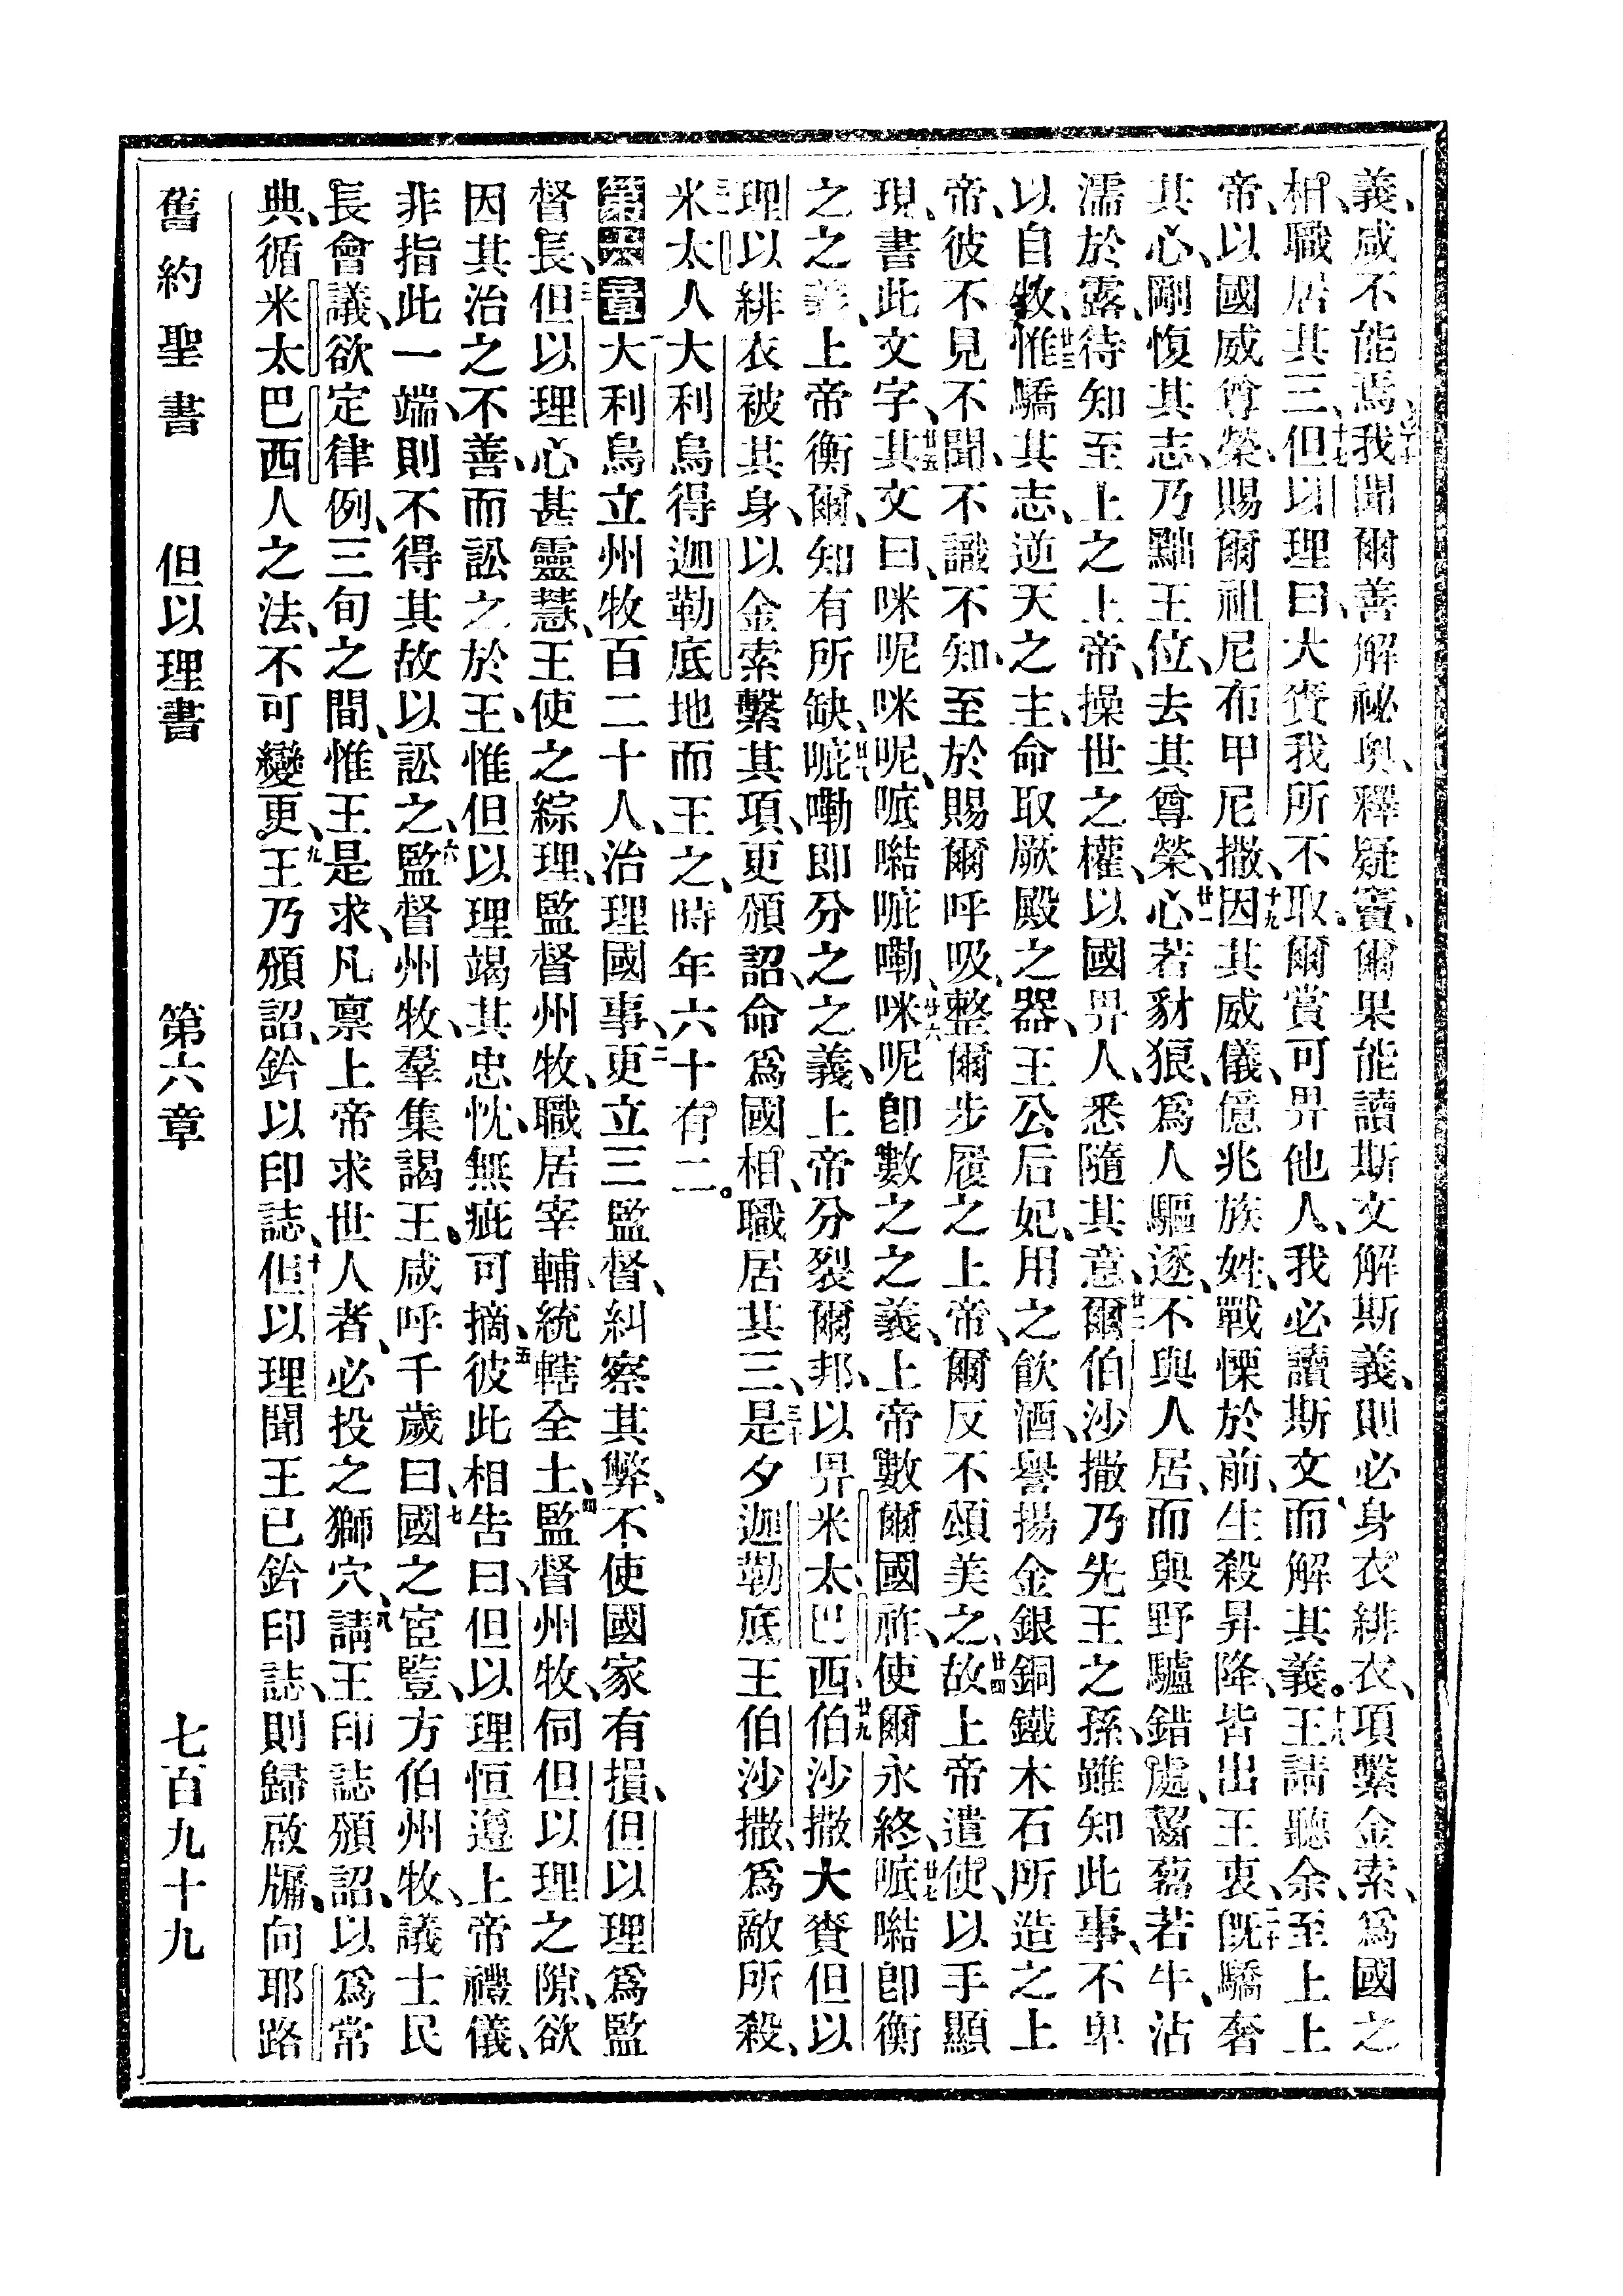 義、咸不能焉、十六我聞爾善解祕奧、釋疑竇、爾果能讀斯文、解斯義、則必身衣緋衣、項繫金索、爲國之
相、職居其三、十七但以理曰、大賚我所不取、爾賞可畀他人、我必讀斯文、而解其義。十八王請聽余、至上上
帝、以國威尊榮、賜爾祖尼布甲尼撒、十九因其威儀、億兆族姓、戰慄於前、生殺昇降、皆出王衷、二十旣驕奢
其心、剛愎其志、乃黜王位、去其尊榮、廿一心若豺狼、爲人驅逐、不與人居、而與野驢錯處、齧芻若牛、沾
濡於露、待知至上之上帝、操世之權、以國畀人、悉隨其意、廿二爾伯沙撒乃先王之孫、雖知此事、不卑
以自牧、廿三惟驕其志、逆天之主、命取厥殿之器、王公后妃、用之飮酒、譽揚金銀銅鐵木石所造之上
帝、彼不見不聞、不識不知、至於賜爾呼吸、整爾步履之上帝、爾反不頌美之、廿四故上帝遣使、以手顯
現、書此文字、廿五其文曰、咪呢咪呢、㗳𠸄㗳嘞、廿六咪呢卽數之之義、上帝數爾國祚、使爾永終、廿七㗳𠸄卽衡
之之義、上帝衡爾、知有所缺、廿八㗳嘞卽分之之義、上帝分裂爾邦、以畀米太、巴西、廿九伯沙撒大賚但以
理、以緋衣被其身、以金索繫其項、更頒詔、命爲國相、職居其三、三十是夕迦勒底王伯沙撒、爲敵所殺、
米太人大利烏得迦勒底地而王之、時年六十有二。
第六章一大利烏立州牧百二十人、治理國事、二更立三監督、糾察其弊、不使國家有損、但以理爲監
督長、三但以理心甚靈慧、王使之綜理、監督州牧、職居宰輔、統轄全土、四監督州牧、伺但以理之隙、欲
因其治之不善而訟之於王、惟但以理竭其忠忱、無疵可摘、五彼此相告曰、但以理恒遵上帝禮儀、
非指此一端、則不得其故以訟之、六監督州牧、羣集謁王、咸呼千歲曰、七國之宦豎、方伯州牧、議士民
長會議、欲定律例、三旬之間、惟王是求、凡禀上帝求世人者、必投之獅穴、八請王印誌頒詔、以爲常
典、循米太巴西人之法、不可變更、九王乃頒詔、鈐以印誌、十但以理聞王已鈐印誌、則歸啟牖、向耶路
舊約聖書　但以理書　第六章　七百九十九